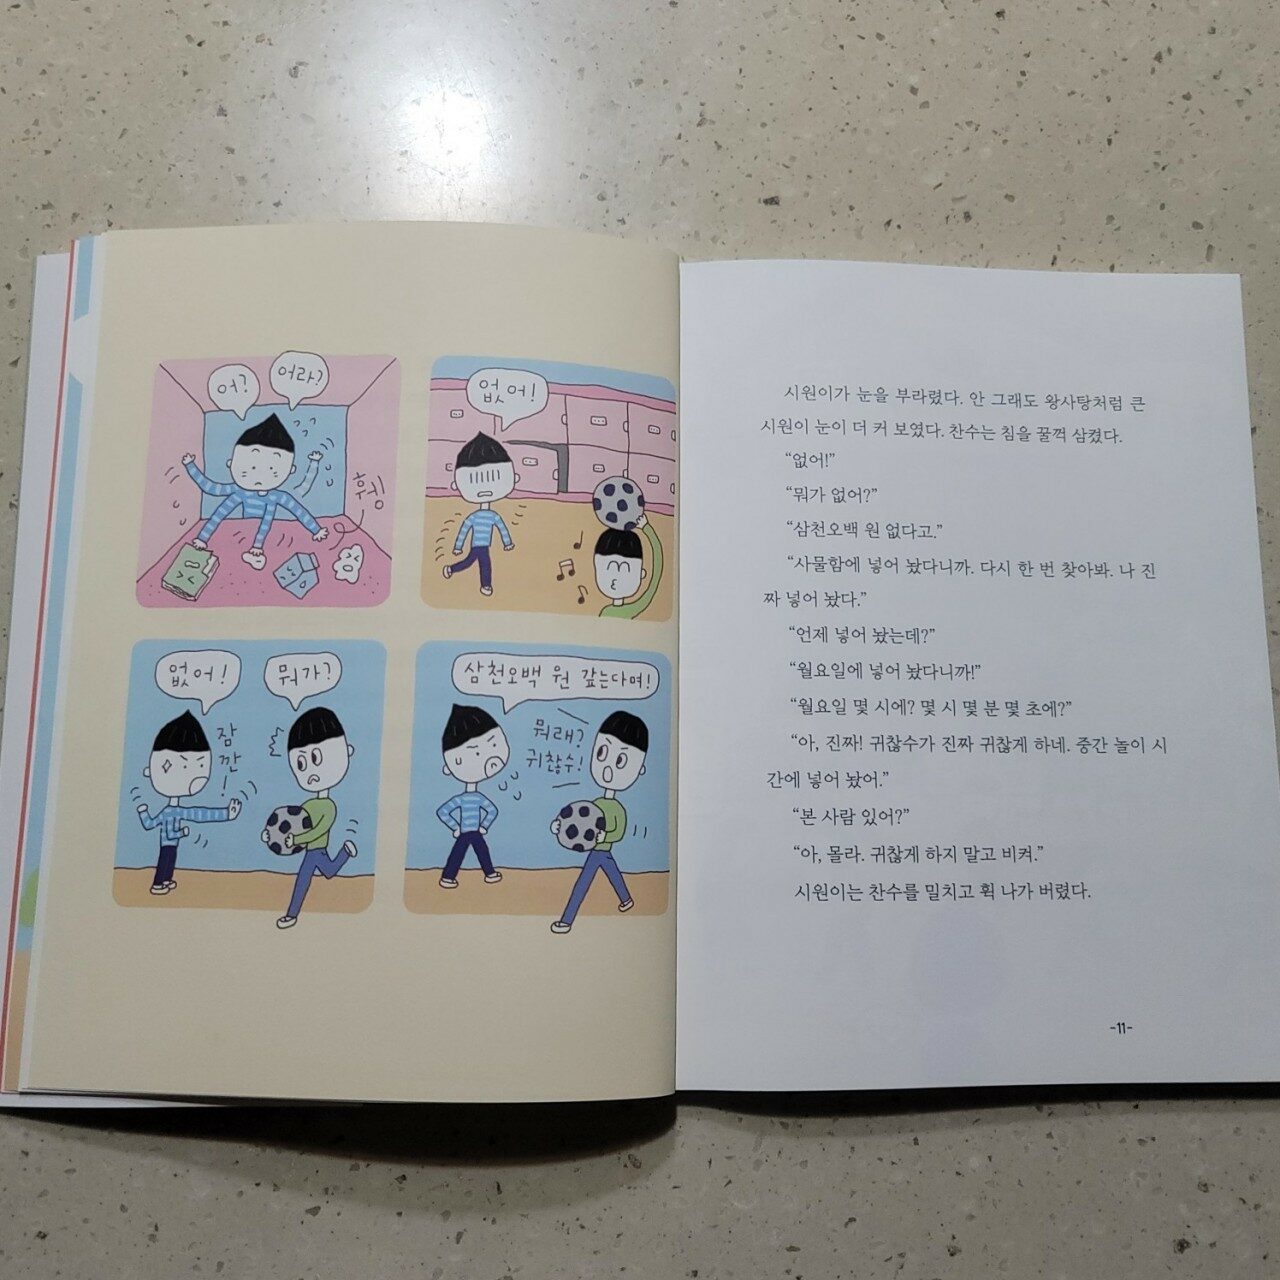 어?
어라?
휑
없어!
없어!
뭐가?
잠
깐!
삼천오백 원 갚는다며!
뭐래?
귀찮수!
시원이가 눈을 부라렸다. 안 그래도 왕사탕처럼 큰
시원이 눈이 더 커 보였다. 찬수는 침을 꿀꺽 삼켰다.
“없어!”
“뭐가 없어?”
“삼천오백 원 없다고.”
“사물함에 넣어 놨다니까. 다시 한 번 찾아봐. 나 진
짜 넣어 놨다.”
“언제 넣어 놨는데?”
“월요일에 넣어 놨다니까!”
“월요일 몇 시에? 몇 시 몇 분 몇 초에?”
“아, 진짜! 귀찮수가 진짜 귀찮게 하네. 중간 놀이 시
간에 넣어 놨어.”
“본 사람 있어?”
“아, 몰라. 귀찮게 하지 말고 비켜.”
시원이는 찬수를 밀치고 획 나가 버렸다.
-11-